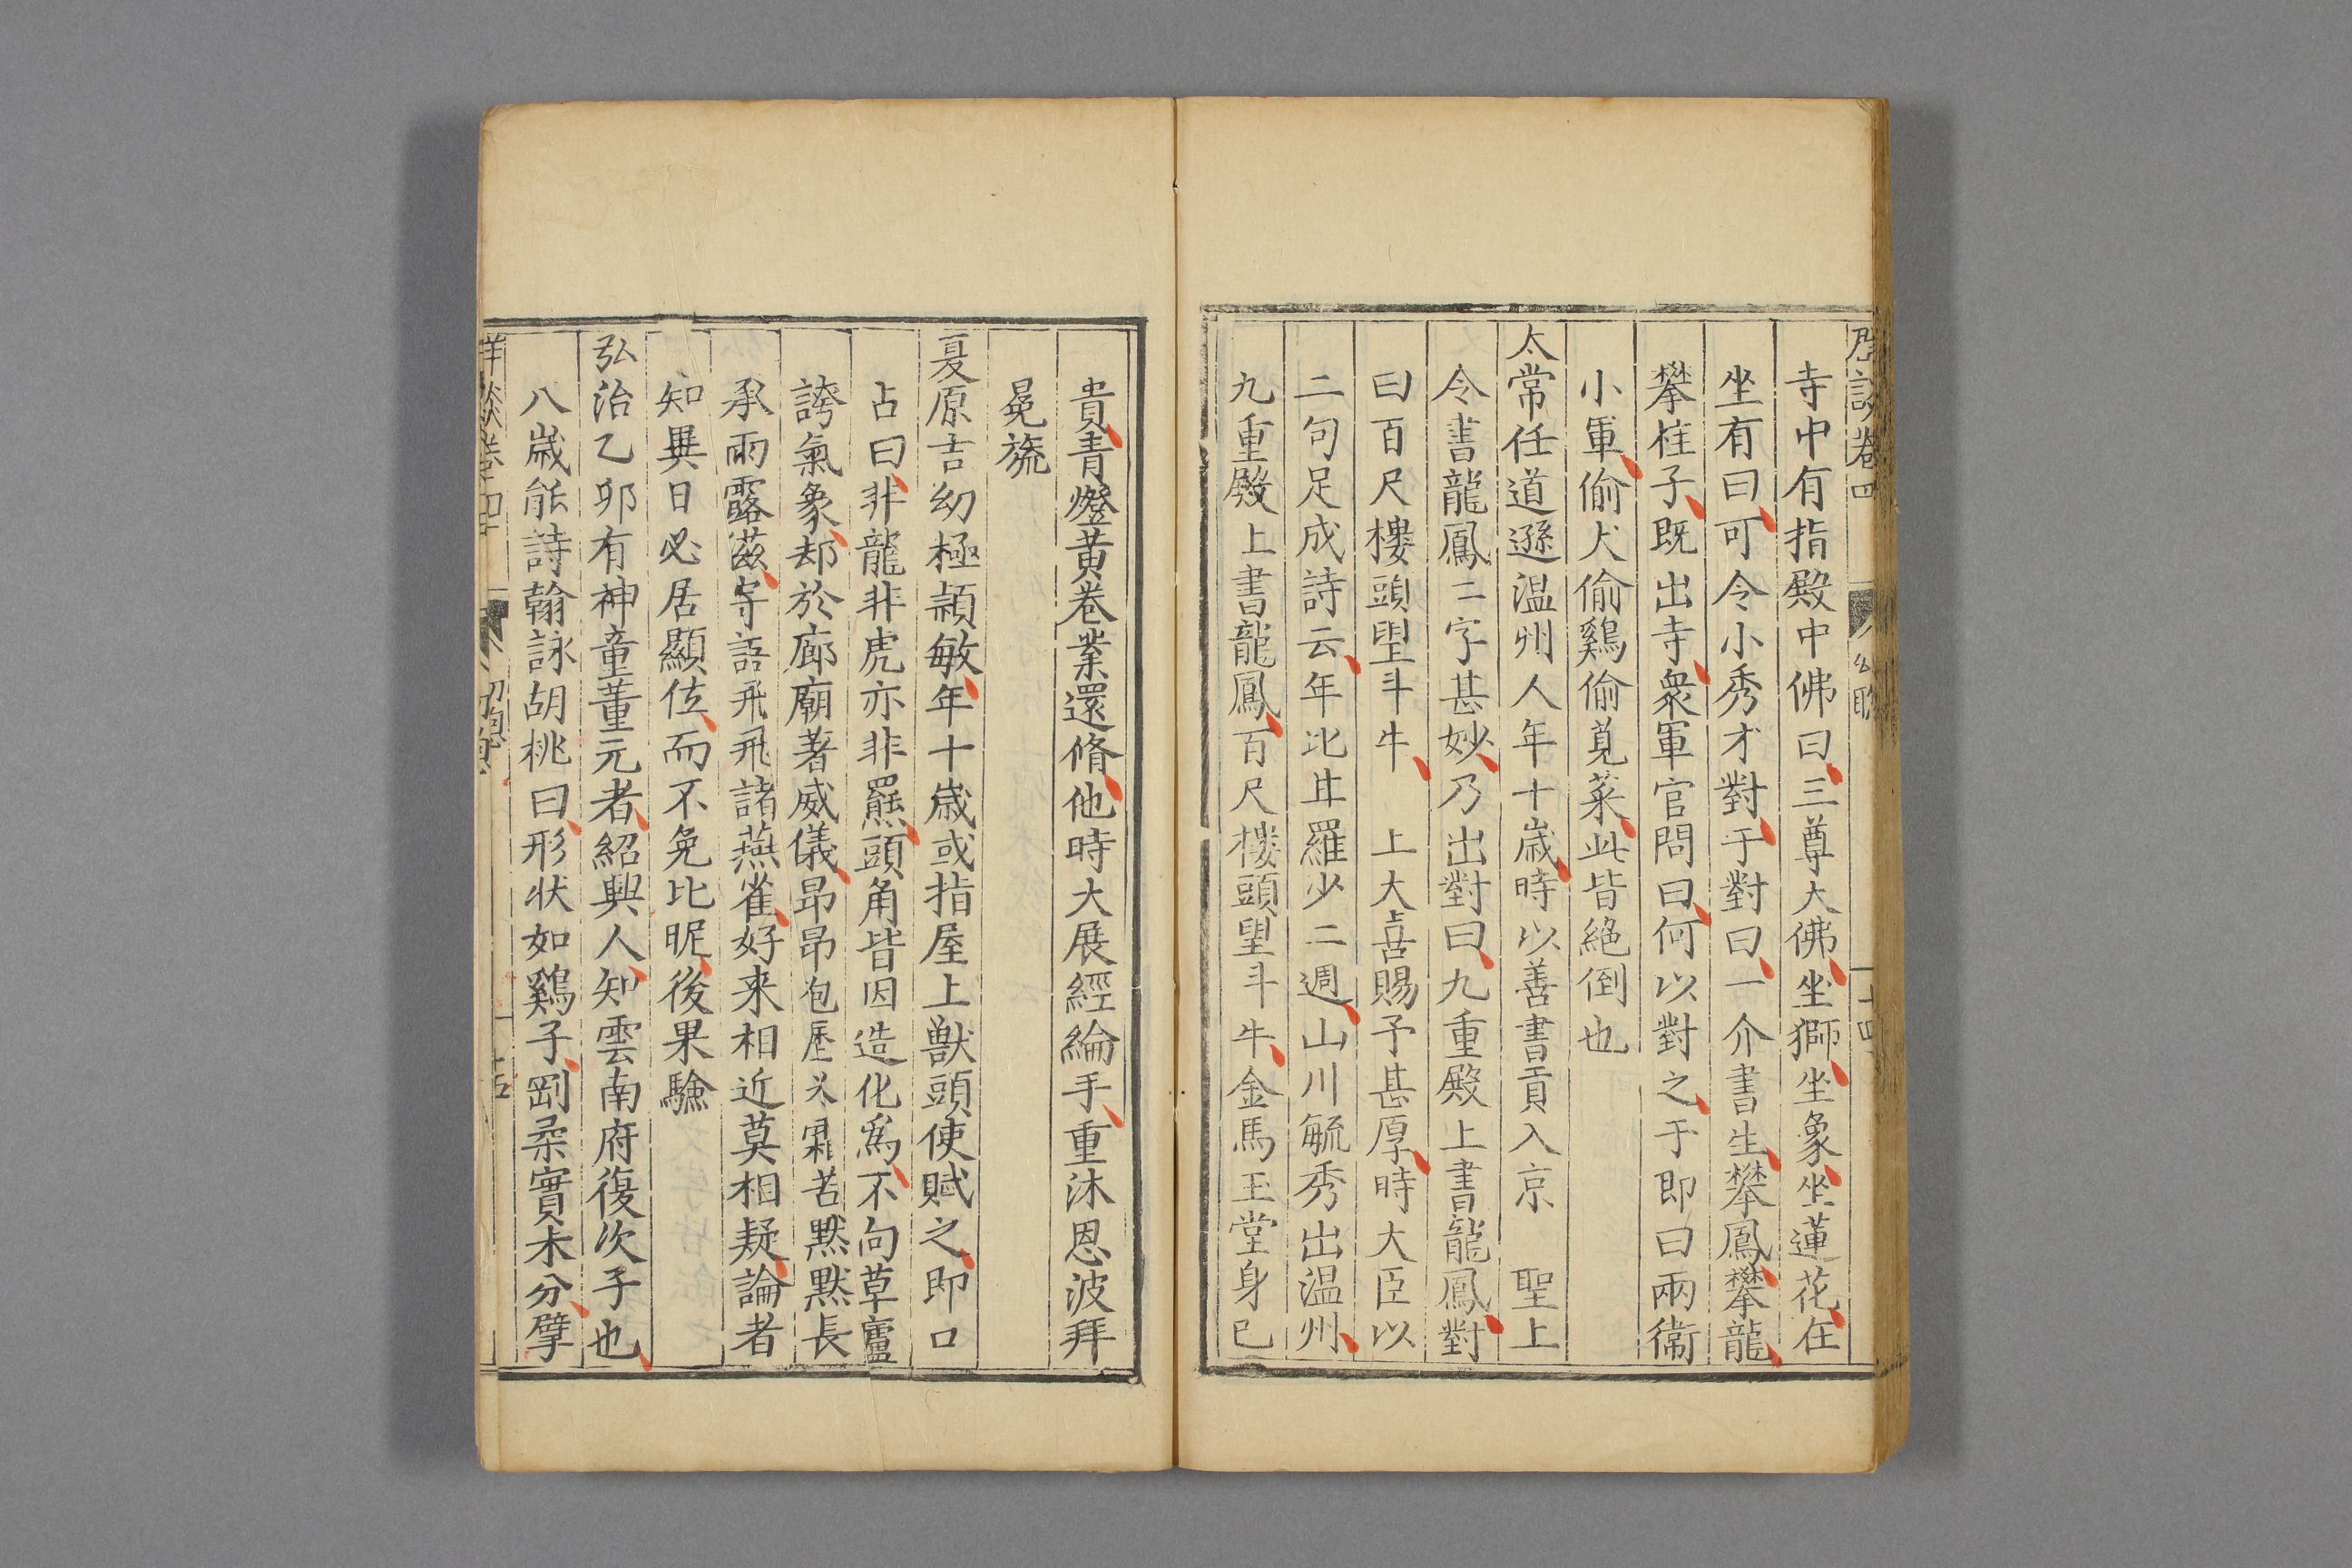 寺中有指殿中佛曰三尊大佛坐獅坐象坐蓮花在
坐有曰可令小秀才對于對曰一介書生攀鳳攀龍
攀桂子既出寺衆軍官問曰何以對之于即曰兩衞
小軍偷犬偷鷄偷莧菜此皆絶倒也
太常任道遜温州人年十歳時以善書貢入京 聖上
令書龍鳳二字甚妙乃出對曰九重殿上書龍鳳對
曰百尺樓頭望斗牛 上大喜賜予甚厚時大臣以
二句足成詩云年比甘羅少二週山川毓秀出温州
九重殿上書龍鳳百尺樓頭望斗牛金馬玉堂身已
貴青燈黄卷業還脩他時大展經綸手重沐恩波拜
冕旒
夏原吉幼極頴敏年十歳或指屋上獸頭使賦之即口
占曰非龍非虎亦非羆頭角皆因造化爲不向草廬
誇氣象却於廊廟著威儀昂昂包歷氷霜苦默默長
承雨露滋寄語飛飛諸燕雀好来相近莫相疑論者
知異日必居顯位而不免比昵後果驗
弘治乙卯有神童董元者紹興人知雲南府復次子也
八歳能詩翰詠胡桃曰形状如鷄子剛柔實未分擘